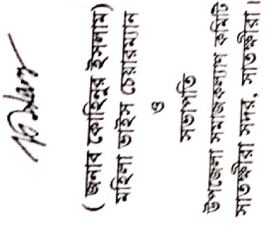 ( জনাব কোহিনুর ইসলাম)
মহিলা ভাইস চেয়ারম্যান
ও
সভাপতি
উপজেলা সমাজকল্যাণ কমিটি
সাতক্ষীরা সদর, সাতক্ষীরা।